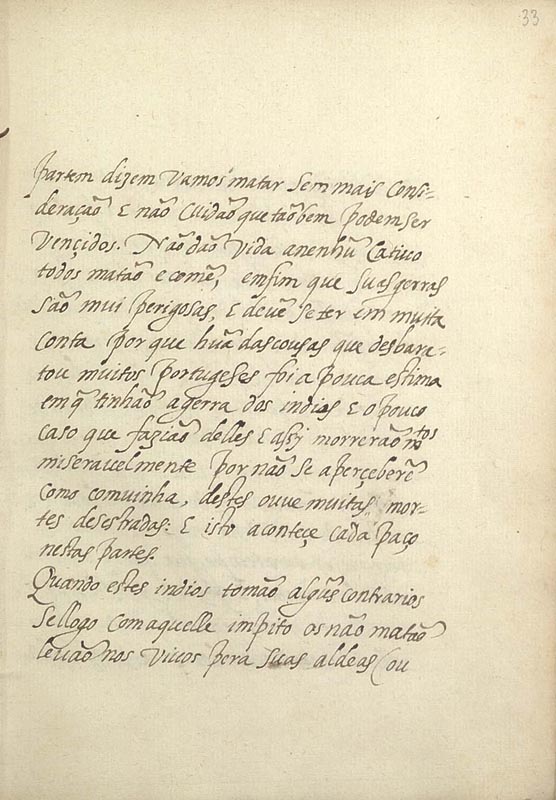 33
partem dizem vamos matar sem mais consi-
deração E não Cuidão que tãobem podem ser
vençidos. Não dão vida anenhũ Cativo
todos matão e comẽ, emfim que suas gerras
são mui perigosas, E devẽ se ter em muita
conta por que hũa das cousas que desbara-
tou muitos Portugeses foi a pouca estima
em q̃ tinhão a gerra dos indios E o pouco
caso que fazião delles E assj morrerão mtos
miseravelmente por não se aperçeberẽ
como convinha, destes ouve muitas mor-
tes desestradas: E isto aconteçe cada paço
nestas partes.
Quando estes indios tomão algũs contrarios
se llogo com aquelle impito os não matão
levão nos vivos pera suas aldeas (ou